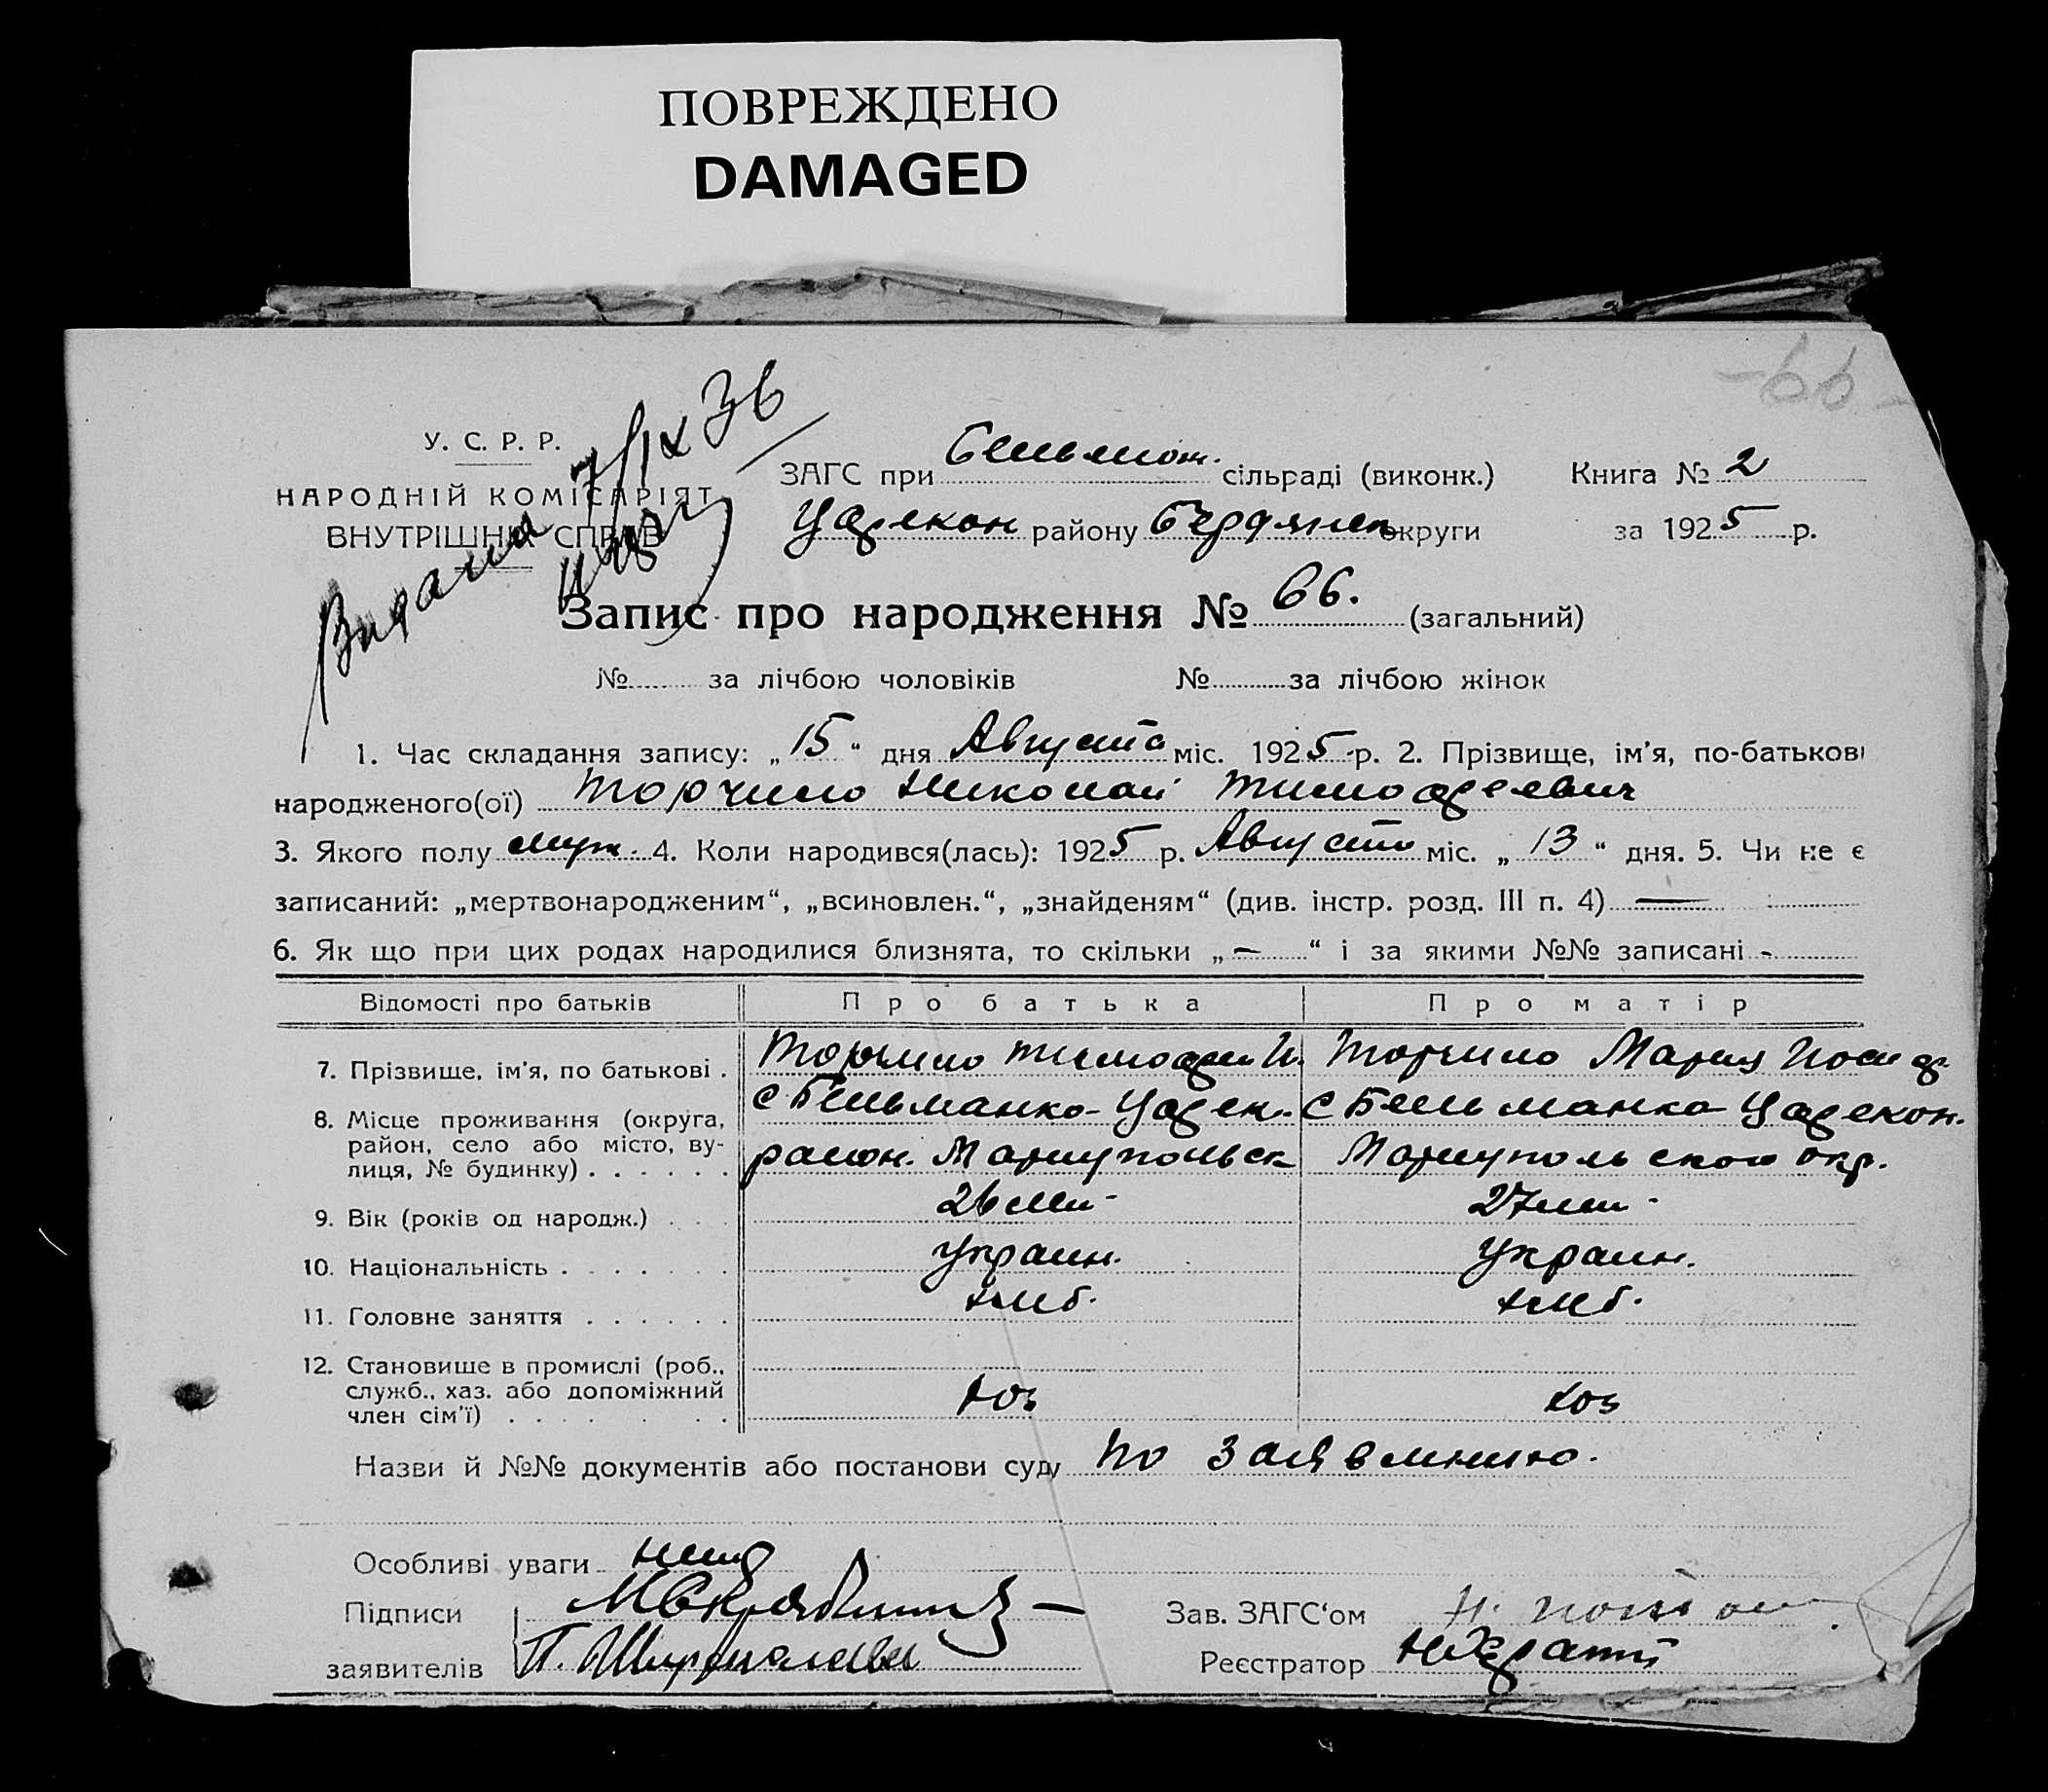 ПОВРЕЖДЕНО
DAMAGED
-66-
У. С. Р. Р.
НАРОДНІЙ КОМІСАРІЯТ
ВНУТРІШНІХ СПРАВ
Видана 7/IX 36
ЗАГС при Бельман. сільраді (виконк.) Книга № 2
Цареκон району Бердянск округи за 1925 р.
Запис про народження № 66. (загальний)
№ за лічбою чоловіків № за лічбою жінок
1. Час складання запису: „15“ дня Августа міс. 1925 р. 2. Прізвище, ім'я, по-батькові
народженого(ої) Торчило Николай Тимофеевич
3. Якого полу муж. 4. Коли народився(лась): 1925 р. Августа міс. „13“ дня. 5. Чи не є
записаний: „мертвонародженим“, „всиновлен.“, „знайденям“ (див. інстр. розд. III п. 4) —
6. Як що при цих родах народилися близнята, то скільки „—“ і за якими №№ записані -
Відомості про батьків Про батька Про матір
7. Прізвище, ім'я, по батькові . Торчило Тимофей И. Торчило Мария Иосиф
8. Місце проживання (округа, район, село або місто, ву-лиця, № будинку) . . . . . . с Бельманка Царек. район. Мариупольск с Бельманка Царекон. Мариупольского окр.
9. Вік (років од народж.) . . . 26 лет 27 лет
10. Національність . . . . . . . Украин. Украин.
11. Головне заняття . . . . . . хлб. хлб.
12. Становище в промислі (роб., служб., хаз. або допоміжний член сім'ї) . . . . . . хоз хоз
Назви й №№ документів або постанови суду По заявлению.
Особливі уваги нет
Підписи
заявителів П.
Зав. ЗАГС'ом
Реєстратор